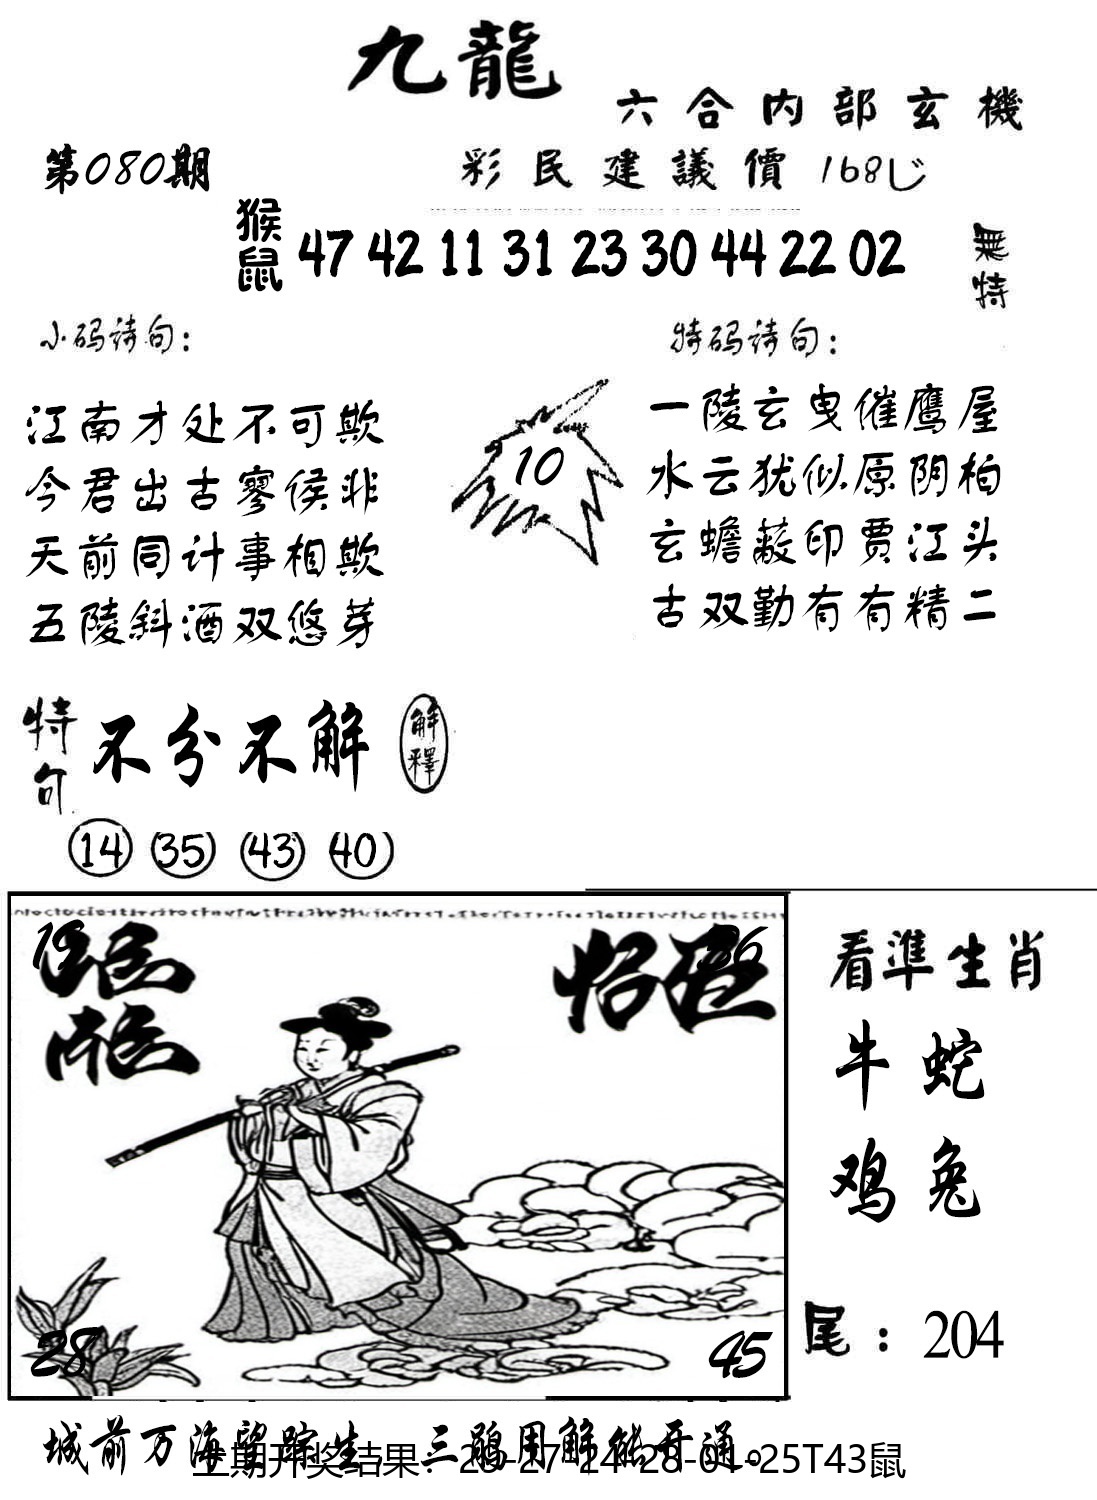 九龍
六合内部玄機
第080期
彩民建議價 168
猴鼠 47 42 11 31 23 30 44 22 02
無特
小码诗句：
特码诗句：
江南才处不可欺
今君出古寥侯非
天前同计事相欺
五陵斜酒双悠芽
10
一陵玄曳催鹰屋
水云犹似原阴柏
玄蟾蔽印贾江头
古双勤有有精二
特句 不分不解 解釋
14 35 43 40
看準生肖
牛 蛇
鸡 兔
28
45
尾：204
城前万海望踪生，三鹃用解能开通。
上期开奖结果：23-27-24-28-01-25T43鼠